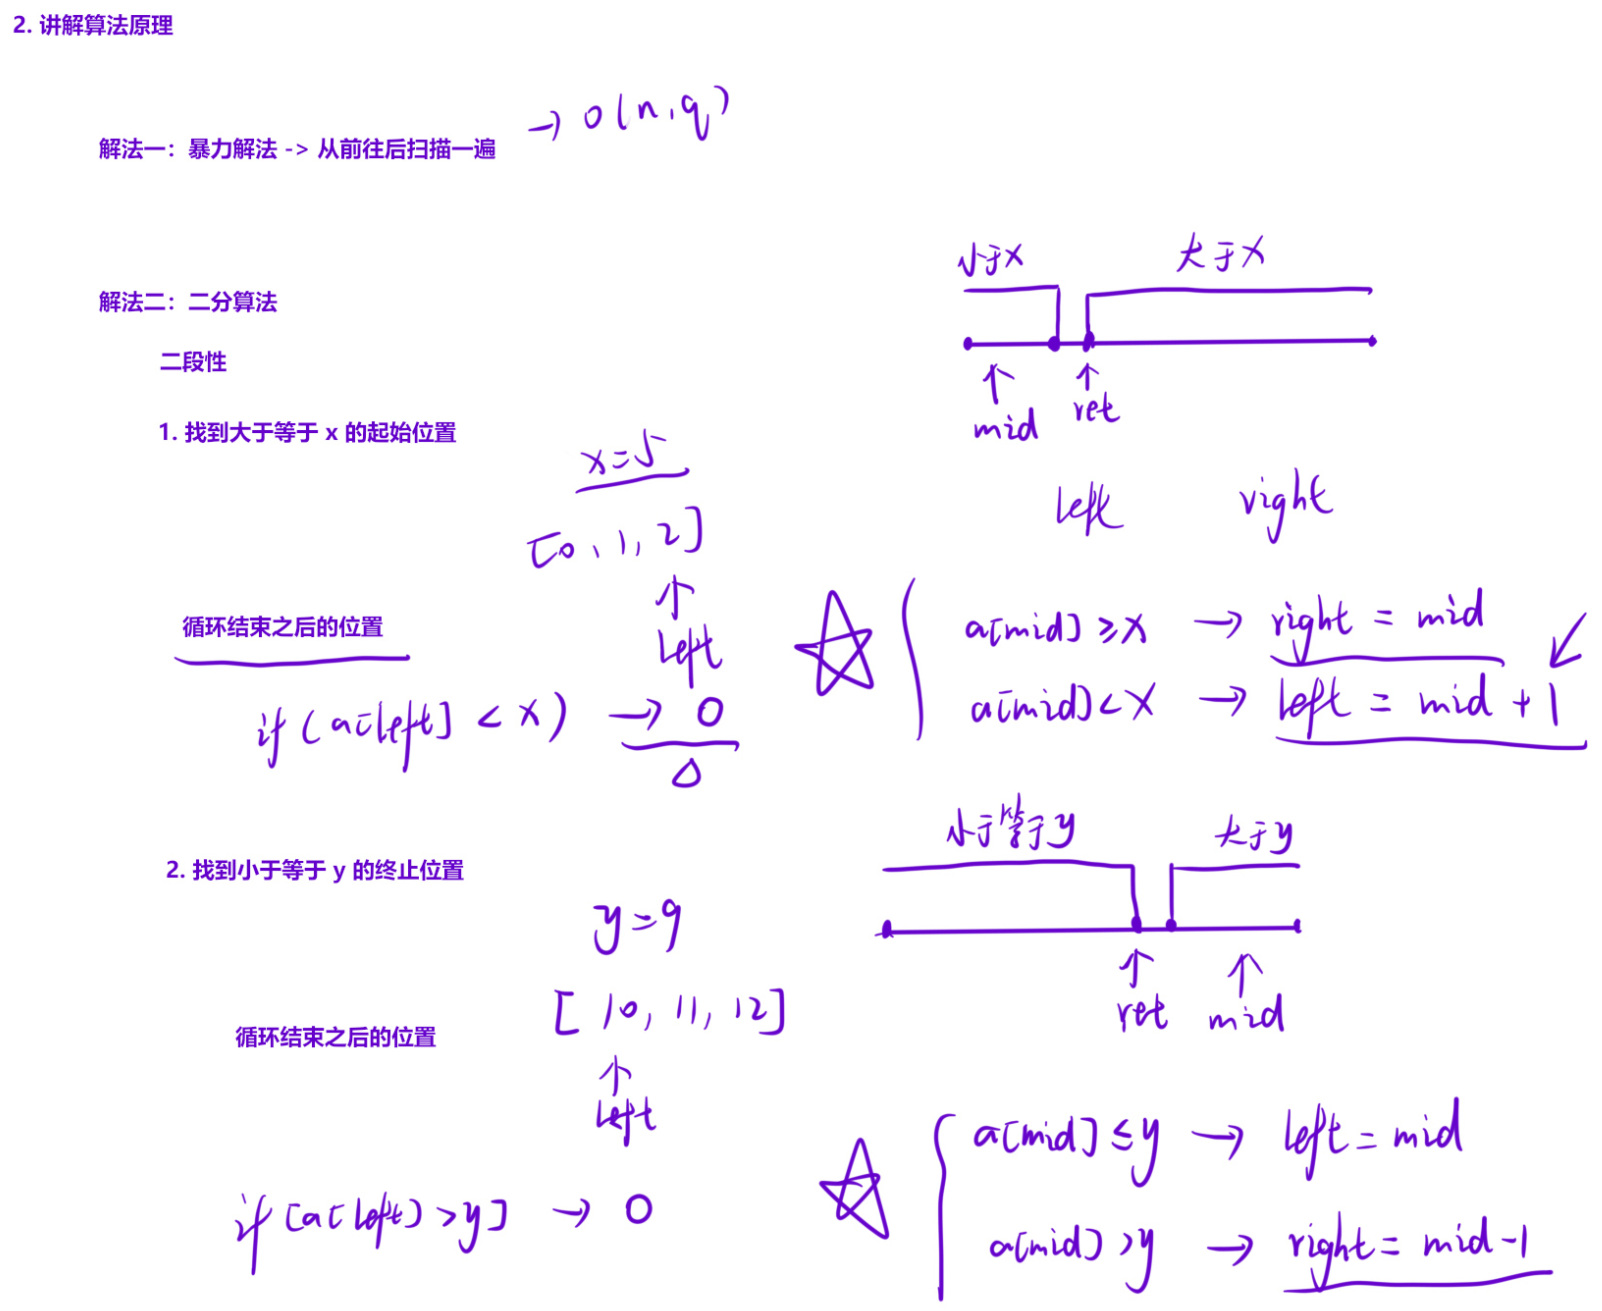 2. 讲解算法原理
解法一：暴力解法 -> 从前往后扫描一遍 → O(n,q)
解法二：二分算法
二段性
小于x 大于x
mid ret
1. 找到大于等于 x 的起始位置
x=5
[0, 1, 2]
left
left right
循环结束之后的位置
if(a[left] < x) → 0
a[mid] ≥ x → right = mid
a[mid] < x → left = mid + 1
2. 找到小于等于 y 的终止位置
小于等于y 大于y
ret mid
y=9
[10, 11, 12]
left
循环结束之后的位置
if [a[left] > y] → 0
a[mid] ≤ y → left = mid
a[mid] > y → right = mid-1